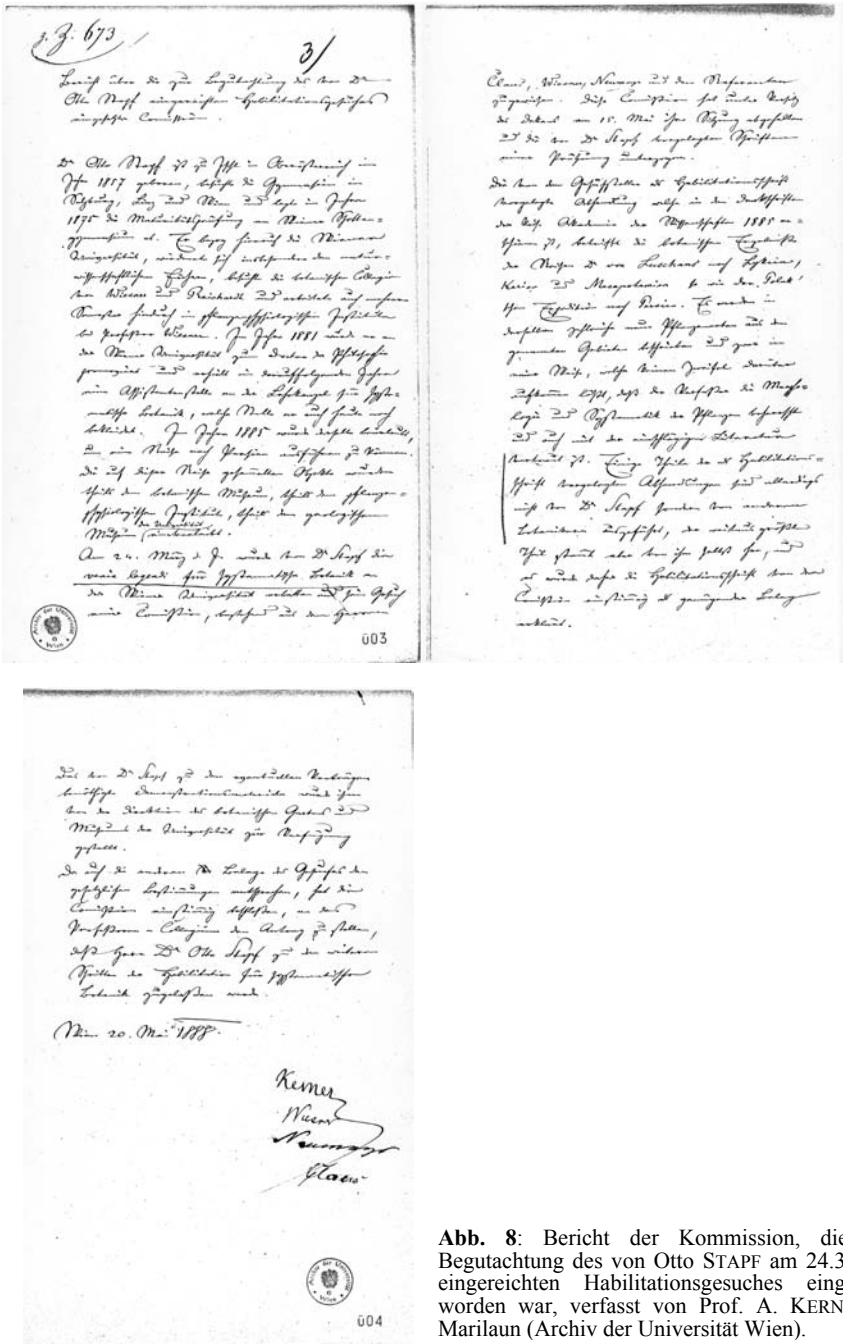 z. Z. 673
3/
Bericht über die zur Begutachtung des von Dr
Otto Stapf eingereichten Habilitationsgesuches
eingesetzte Comission.
Dr Otto Stapf ist zu Ischl in Oberösterreich im
Jahre 1857 geboren, besuchte die Gymnasien in
Salzburg, Linz und Wien und legte im Jahre
1875 die Maturitätsprüfung am Wiener Schotten-
gymnasium ab. Er bezog hierauf die Wiener
Universität, widmete sich insbesondere den natur-
wissenschaftlichen Fächern, besuchte die botanischen Collegien
von Wiesner und Reichardt und arbeitete auch mehrere
Semester hindurch im pflanzenphysiologischen Institute
bei Professor Wiesner. Im Jahre 1881 wurde er an
der Wiener Universität zum Doctor der Philosophie
promoviert und erhielt im darauffolgenden Jahre
eine Assistentenstelle an der Lehrkanzel für syste-
matische Botanik, welche Stelle er auch heute noch
bekleidet. Im Jahre 1885 wurde derselbe beurlaubt,
um eine Reise nach Persien ausführen zu können.
Die auf dieser Reise gesammelten Objekte wurden
theils dem botanischen Museum, theils dem pflanzen-
physiologischen Institute, theils dem geologischen
Museum der Universität einverleibt.
Am 24. März d. J. wurde von Dr Stapf die
venia legendi für systematische Botanik an
der Wiener Universität erbeten und sein Gesuch
einer Comission, bestehend aus den Herren
003
Claus, Wiesner, Neumayr und dem Referenten
zugewiesen. Diese Comission hat unter Vorsitz
des Dekans am 15. Mai ihre Sitzung abgehalten
und die von Dr Stapf vorgelegten Schriften
einer Prüfung unterzogen.
Die von dem Gesuchsteller als Habilitationsschrift
vorgelegte Abhandlung welche in den Denkschriften
der Kais. Akademie der Wissenschaften 1885 er-
schienen ist, betrifft die botanischen Ergebnisse
der Reisen Dr von Luschans nach Lykien,
Karien und Mesopotamien so wie der Polak'
schen Expedition nach Persien. Es werden in
derselben zahlreiche neue Pflanzenarten aus den
genannten Gebieten beschrieben und zwar in
einer Weise, welche keinen Zweifel darüber
aufkommen läßt, daß der Verfasser die Morpho-
logie und Systematik der Pflanzen beherrscht
und auch mit der einschlägigen Literatur
vertraut ist. Einige Theile der als Habilitations-
schrift vorgelegten Abhandlungen sind allerdings
nicht von Dr Stapf sondern von anderen
Botanikern ausgeführt, der weitaus größte
Theil stammt aber von ihm selbst her, und
es wurde daher die Habilitationsschrift von der
Comission einstimmig als genügender Beleg
erklärt.
Das von Dr Stapf zu den eventuellen Vorträgen
benöthigte Demonstrationsmateriale wird ihm
von der Direktion des botanischen Gartens und
Museums der Universität zur Verfügung
gestellt.
Da auch die anderen Belege des Gesuches den
gesetzlichen Bestimmungen entsprechen, hat die
Comission einstimmig beschloßen, an das
Professoren-Collegium den Antrag zu stellen,
daß Herr Dr Otto Stapf zu den weiteren
Schritten der Habilitation für systematische
Botanik zugelaßen werde.
Wien 20. Mai 1888.
Kerner
Wiesner
Neumayr
Claus
004
Abb. 8: Bericht der Kommission, die
Begutachtung des von Otto STAPF am 24.3
eingereichten Habilitationsgesuches eing
worden war, verfasst von Prof. A. KERN
Marilaun (Archiv der Universität Wien).